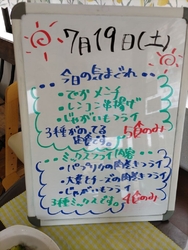 7月19日(土)
今日の気まぐれ
・でか メンチ
・レンコン串揚げ
・じゃがいもフライ
3種がのってる
定食です。
5食のみ
ミックスフライ内容
・パプリカの肉巻きフライ
・大葉とチーズの肉巻きフライ
・じゃがいもフライ
3種ミックスです。
4食のみ